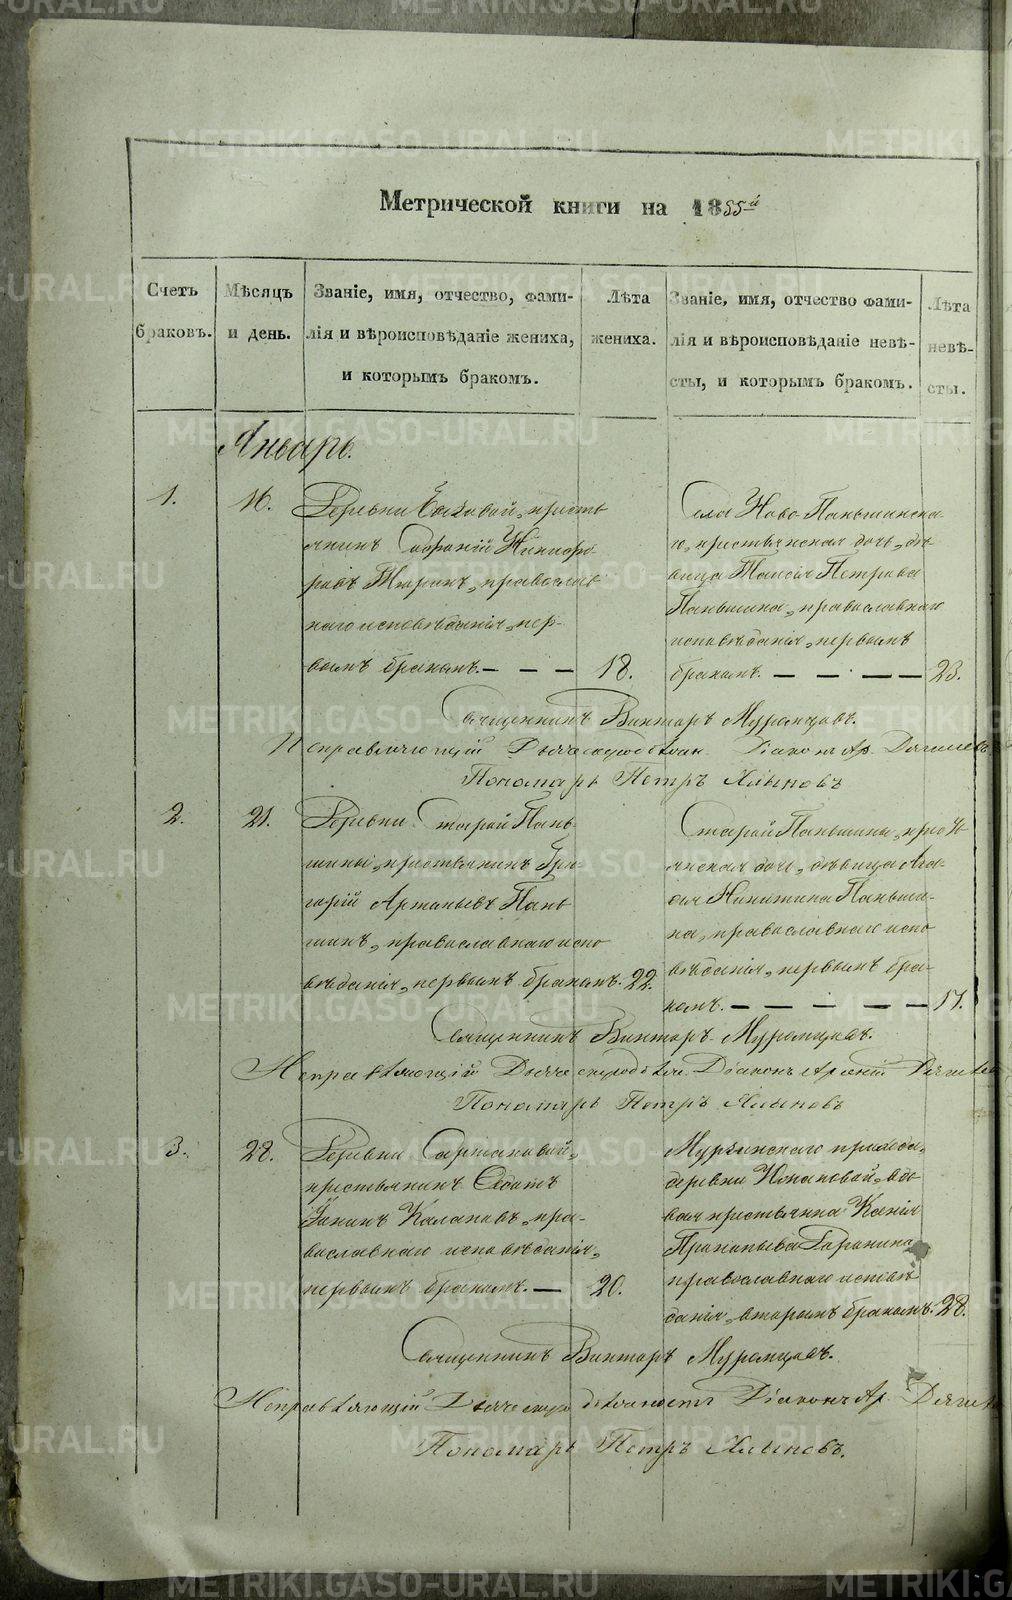 Метрической книги на 1855й
Счетъ браковъ.
Мѣсяцъ и день.
Званіе, имя, отчество, фами-
лія и вѣроисповѣданіе жениха,
и которымъ бракомъ.
Лѣта жениха.
Званіе, имя, отчество фами-
лія и вѣроисповѣданіе невѣ-
сты, и которымъ бракомъ.
Лѣта невѣ-
сты.
Январь.
1.
16.
Деревни кресть
янинъ Софроній Никифо
ровъ православ
наго исповѣданія, пер-
вымъ бракомъ.
18.
Села Ново-Паньшинска-
го, крестьянская дочь, дѣ-
вица Таисія Петрова
Паньшина, православнаго
исповѣданія, первымъ
бракомъ.
23.
Священникъ Викторъ Муромцовъ.
Исправляющій Діаконъ Ар.
Пономарь Петръ Хлыновъ
2.
21.
Деревни Старой Пань-
шины, крестьянинъ Гри-
горій Артемьевъ Пань
шинъ, православнаго испо
вѣданія, первымъ бракомъ.
22.
Старой Паньшины, кресть
янская дочь, дѣвица Ага-
фія Никитина Паньши-
на, православнаго испо
вѣданія, первымъ бра-
комъ.
17.
Священникъ Викторъ Муромцовъ.
Исправляющій Діаконъ
Пономарь Петръ Хлыновъ
3.
28.
Деревни
крестьянинъ Ѳедотъ
православнаго исповѣданія,
первымъ бракомъ.
20.
Мурзинскаго прихода,
деревни вдо
вая крестьянка Ксенія
Прокопьева
православнаго исповѣ
данія, вторымъ бракомъ.
28.
Священникъ Викторъ Муромцовъ.
Исправляющій должность Діаконъ Ар.
Пономарь Петръ Хлыновъ.
METRIKI.GASO-URAL.RU